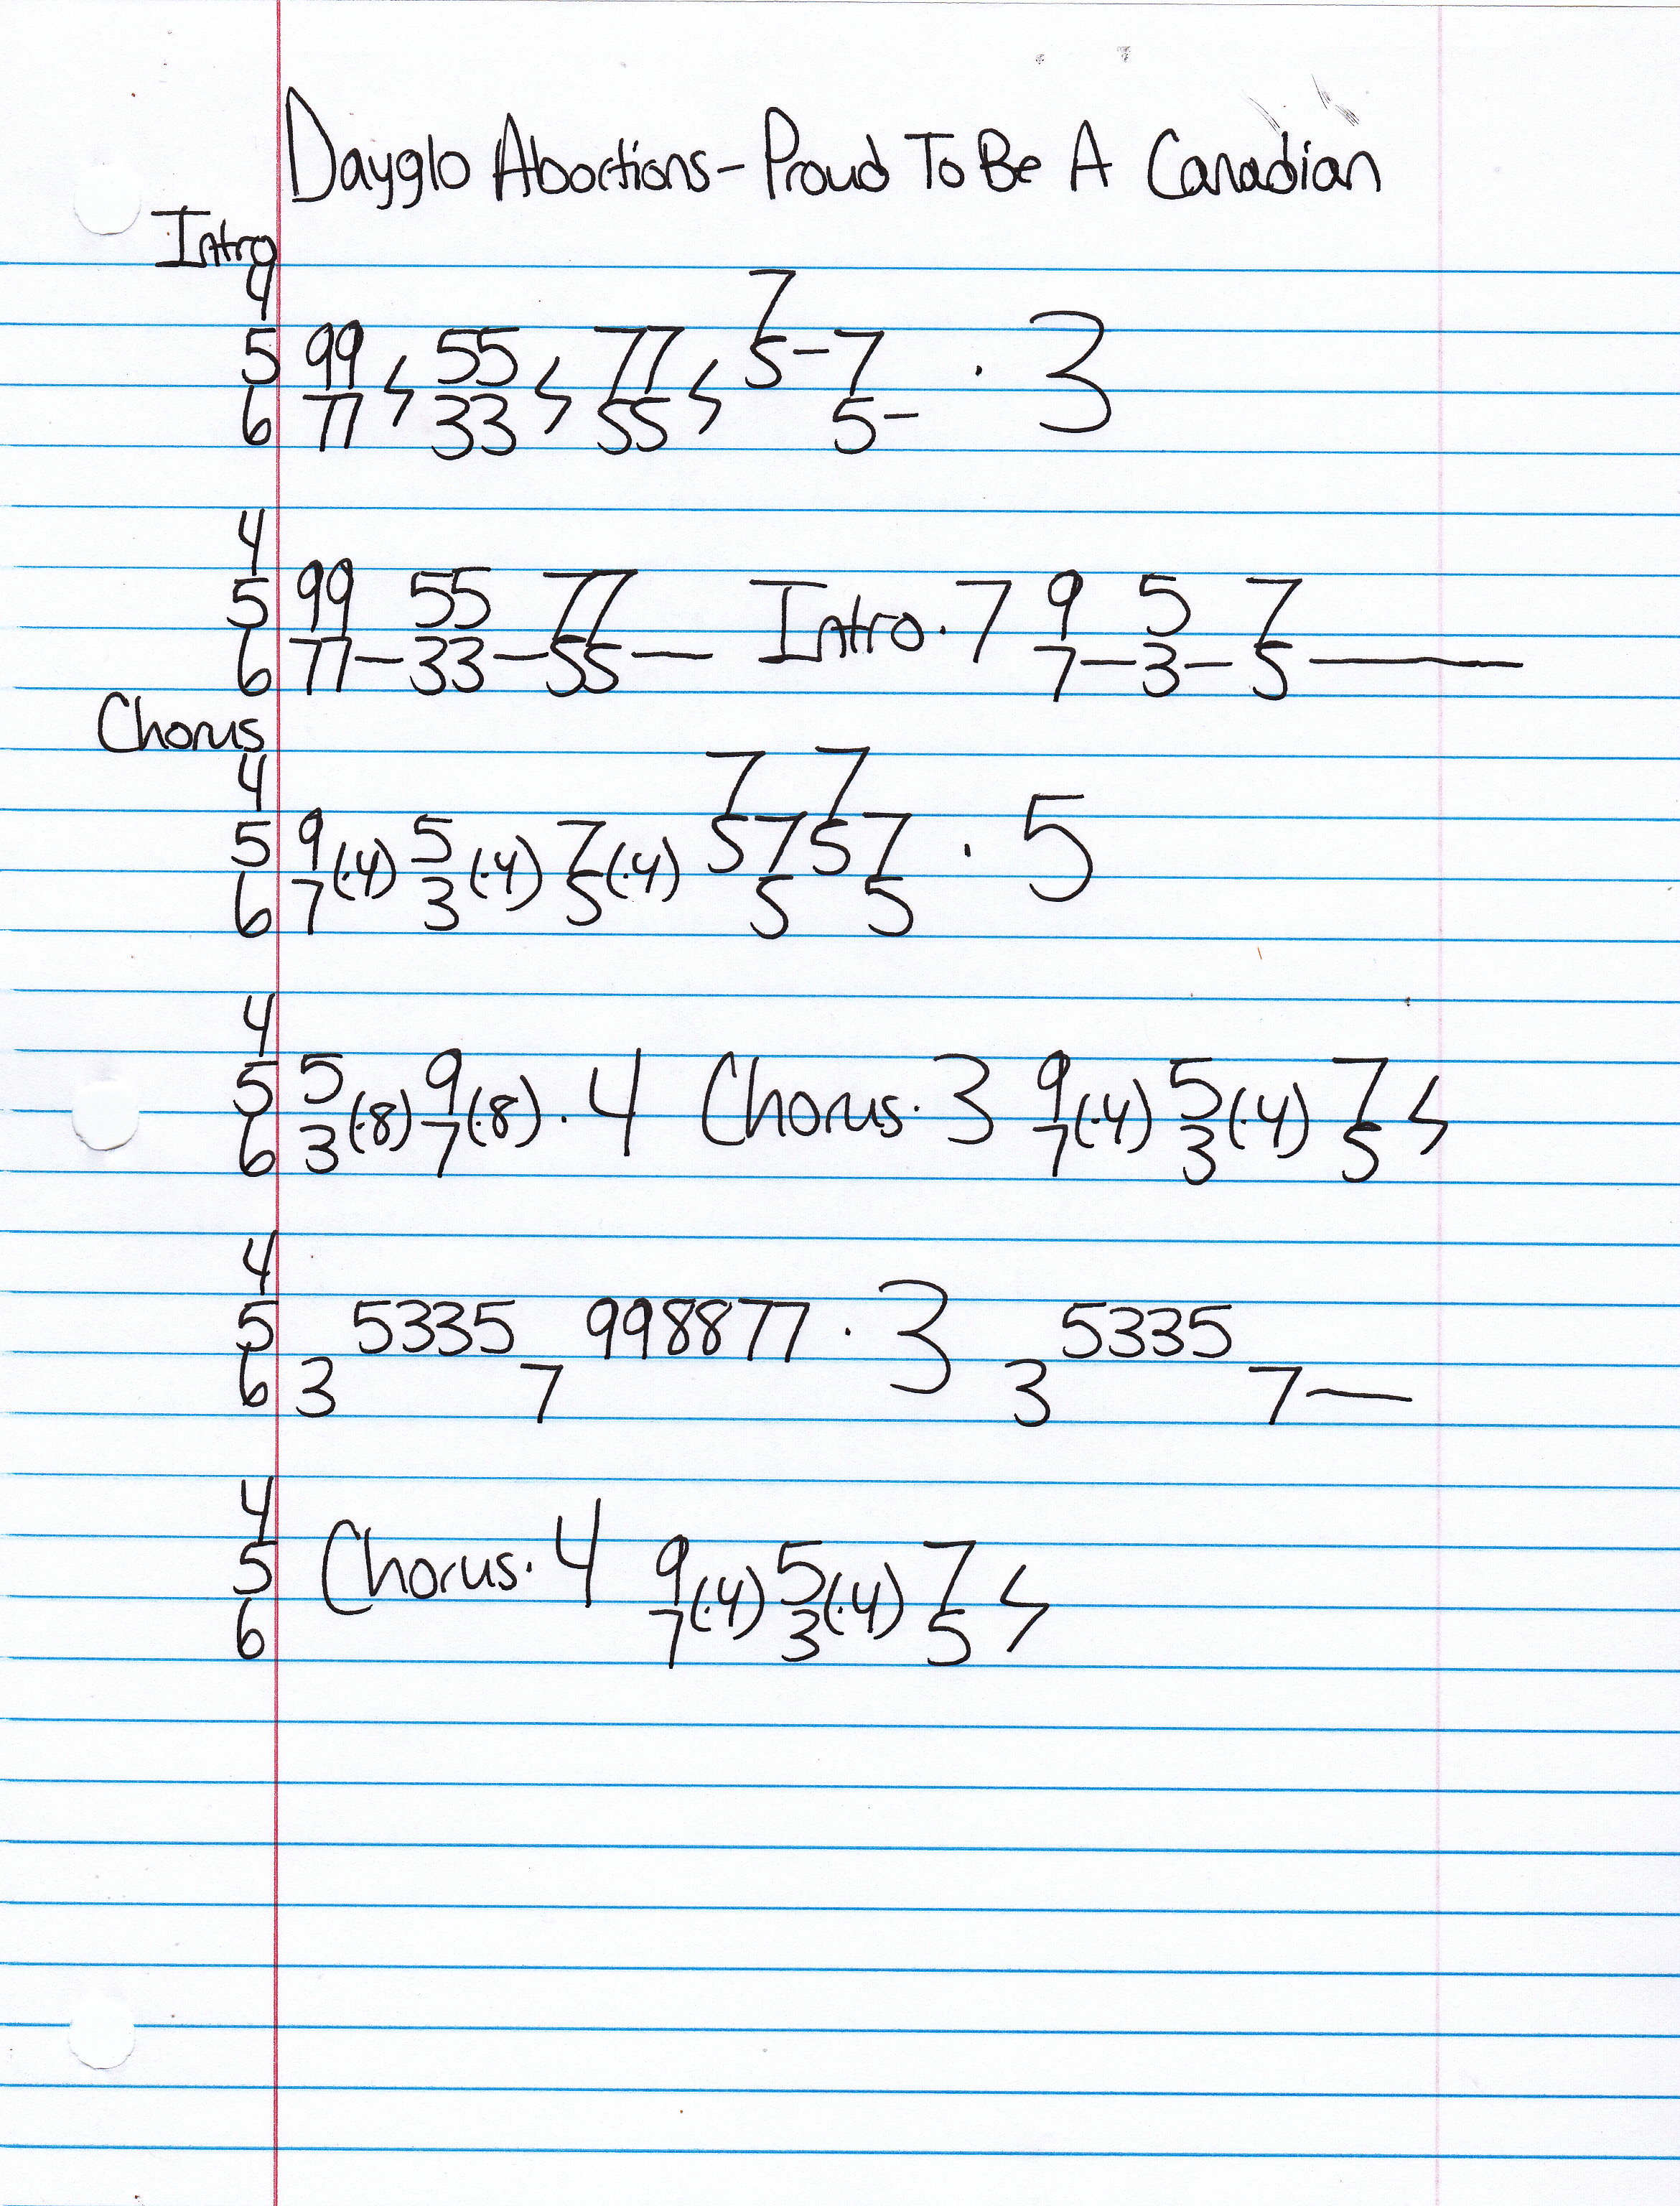 Dayglo Abortions - Proud To Be A Canadian
Intro
4 7
5 99 55 77 5-7 · 3
6 77 33 55 5-
4
5 99 55 77 Intro · 7 9 5 7
6 77-33-55— 7-3-5—
Chorus
4 7 7
5 9(·4) 5(·4) 7(·4) 5757 · 5
6 7 3 5 5 5
4
5 5(·8) 9(·8) · 4 Chorus · 3 9(·4) 5(·4) 7
6 3 7 7 3 5
4
5 5335 998877 · 3 5335
6 3 7 3 7—
4
5 Chorus · 4 9(·4) 5(·4) 7
6 7 3 5